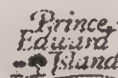 Prince
Edward
Island